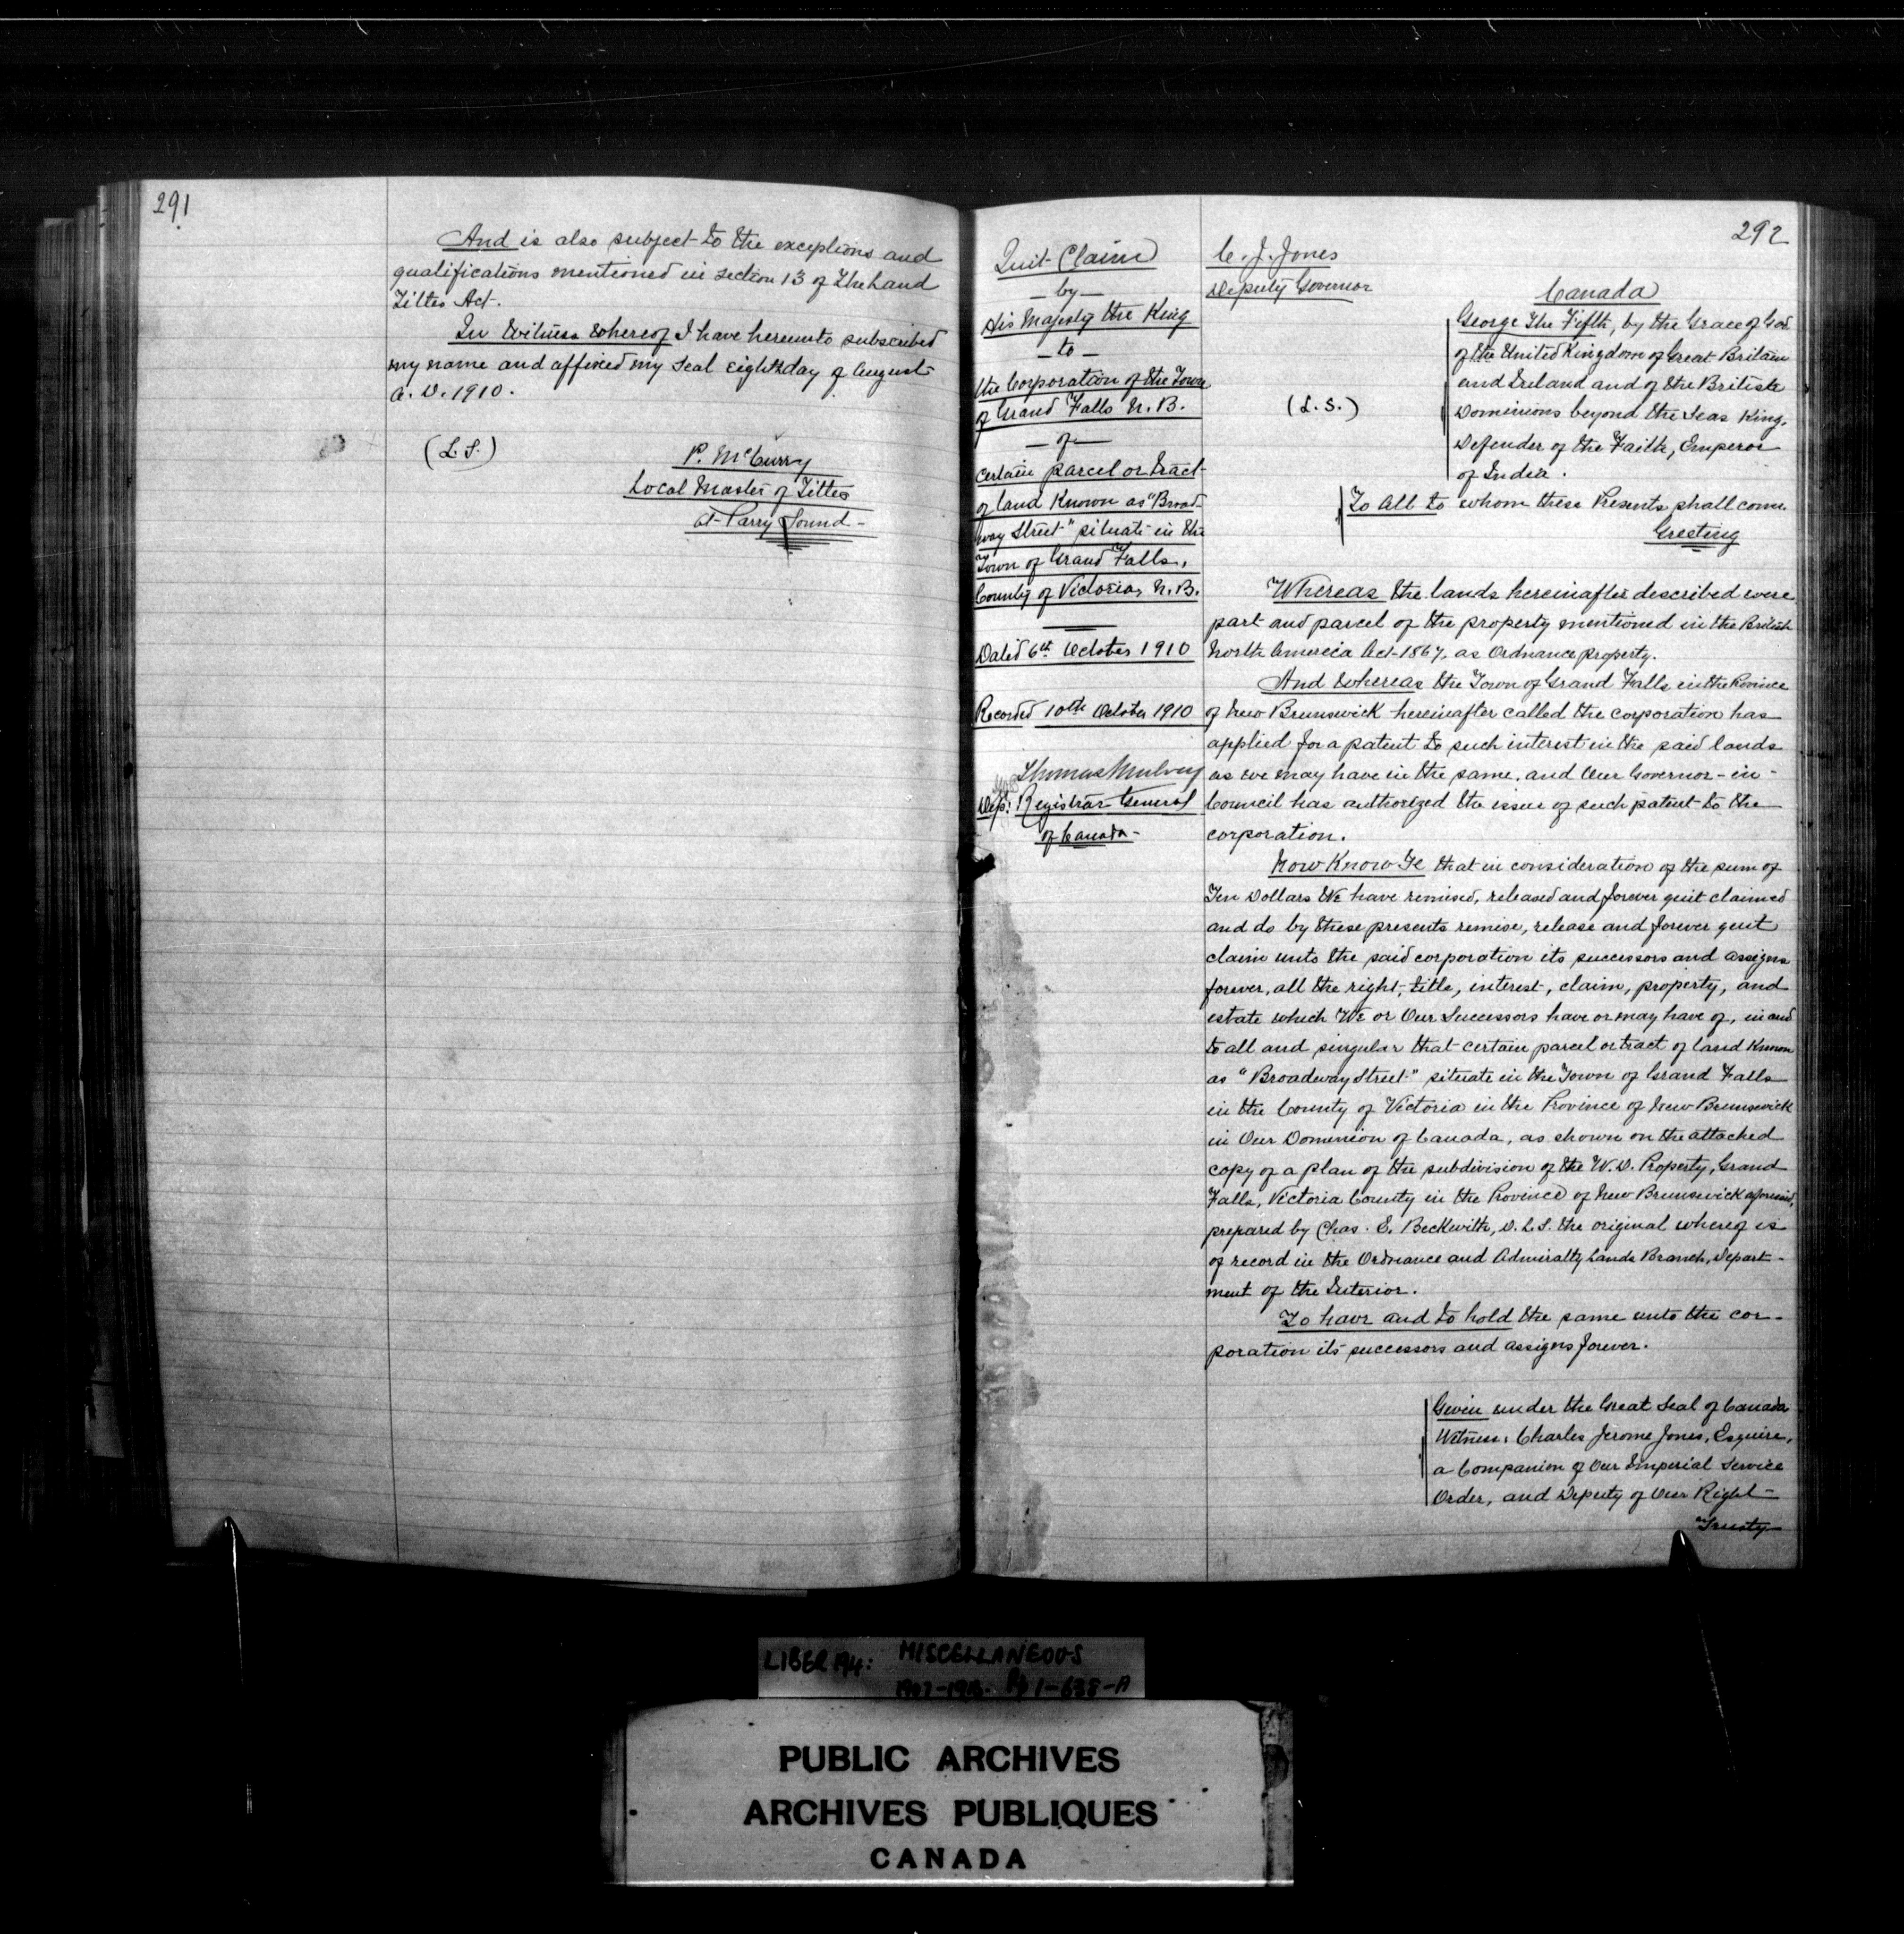 291
And is also subject to the exceptions and
qualifications mentioned in section 13 of The Land
Titles Act.
In Witness Whereof I have hereunto subscribed
my name and affixed my seal eighth day of August
A. D. 1910.
(L. S.)
P. McCurry
Local Master of Titles
at Parry Sound
292
Quit Claim
by
His Majesty the King
to
the Corporation of the Town
of Grand Falls N. B.
of
certain parcel or tract
of land known as "Broad-
way Street" situate in the
Town of Grand Falls,
County of Victoria, N. B.
Dated 6th October 1910
Recorded 10th October 1910
Thomas Mulvey
Dep. Registrar General
of Canada
C. J. Jones
Deputy Governor
Canada
(L. S.)
George The Fifth, by the Grace of God
of the United Kingdom of Great Britain
and Ireland and of the British
Dominions beyond the Seas King,
Defender of the Faith, Emperor
of India.
To All to whom these Presents shall come
Greeting
Whereas the lands hereinafter described were
part and parcel of the property mentioned in the British
North America Act 1867, as Ordnance property.
And Whereas the Town of Grand Falls in the Province
of New Brunswick hereinafter called the corporation has
applied for a patent to such interest in the said lands
as we may have in the same, and Our Governor-in-
Council has authorized the issue of such patent to the
corporation.
Now Know Ye that in consideration of the sum of
Ten Dollars We have remised, released and forever quit claimed
and do by these presents remise, release and forever quit
claim unto the said corporation its successors and assigns
forever, all the right, title, interest, claim, property, and
estate which We or Our Successors have or may have of, in and
to all and singular that certain parcel or tract of land known
as "Broadway Street" situate in the Town of Grand Falls
in the County of Victoria in the Province of New Brunswick
in Our Dominion of Canada, as shown on the attached
copy of a plan of the subdivision of the W. D. Property, Grand
Falls, Victoria County in the Province of New Brunswick aforesaid,
prepared by Chas. E. Beckwith, D. L. S. the original whereof is
of record in the Ordnance and Admiralty Lands Branch, Depart-
ment of the Interior.
To have and to hold the same unto the cor-
poration its successors and assigns forever.
Given under the Great Seal of Canada
Witness, Charles Jerome Jones, Esquire,
a Companion of Our Imperial Service
Order, and Deputy of Our Right
Trusty
LIBER 194: MISCELLANEOUS
Pp 1-638-A
PUBLIC ARCHIVES
ARCHIVES PUBLIQUES
CANADA